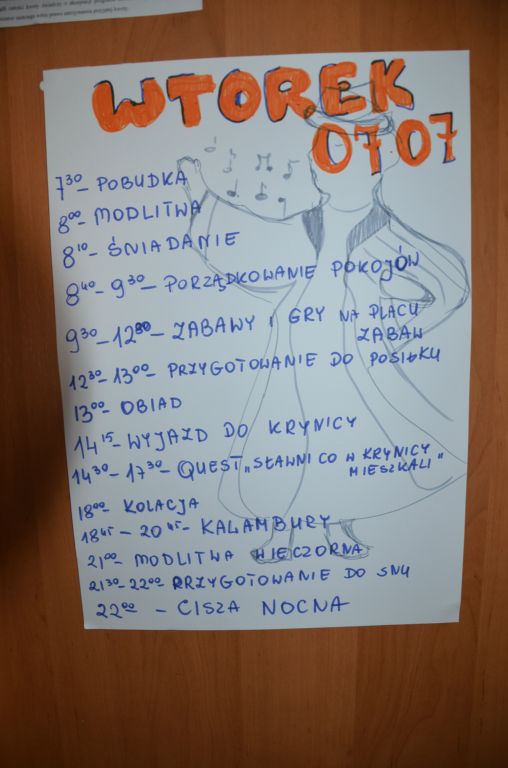 WTOREK
07 07
7³⁰ - POBUDKA
8⁰⁰ - MODLITWA
8¹⁰ - ŚNIADANIE
8⁴⁰ - 9³⁰ - PORZĄDKOWANIE POKOJÓW
9³⁰ - 12³⁰ - ZABAWY I GRY NA PLACU
ZABAW
12³⁰ - 13⁰⁰ - PRZYGOTOWANIE DO POSIŁKU
13⁰⁰ - OBIAD
14¹⁵ - WYJAZD DO KRYNICY
14³⁰ - 17³⁰ - QUEST „SŁAWNI CO W KRYNICY
MIESZKALI"
18⁰⁰ KOLACJA
18⁴⁵ - 20⁴⁵ - KALAMBURY
21⁰⁰ - MODLITWA WIECZORNA
21³⁰ - 22⁰⁰ PRZYGOTOWANIE DO SNU
22⁰⁰ - CISZA NOCNA